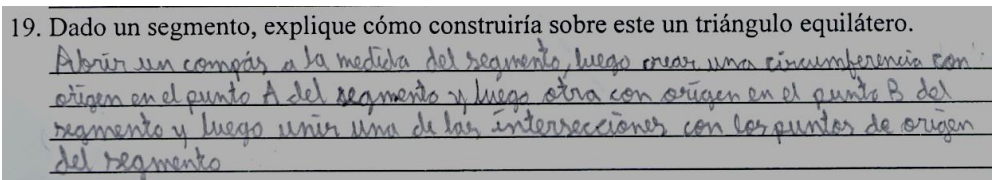 19. Dado un segmento, explique cómo construiría sobre este un triángulo equilátero.
Abrir un compás a la medida del segmento, luego crear una circunferencia con
origen en el punto A del segmento y luego otra con origen en el punto B del
segmento y luego unir una de las intersecciones con los puntos de origen
del segmento